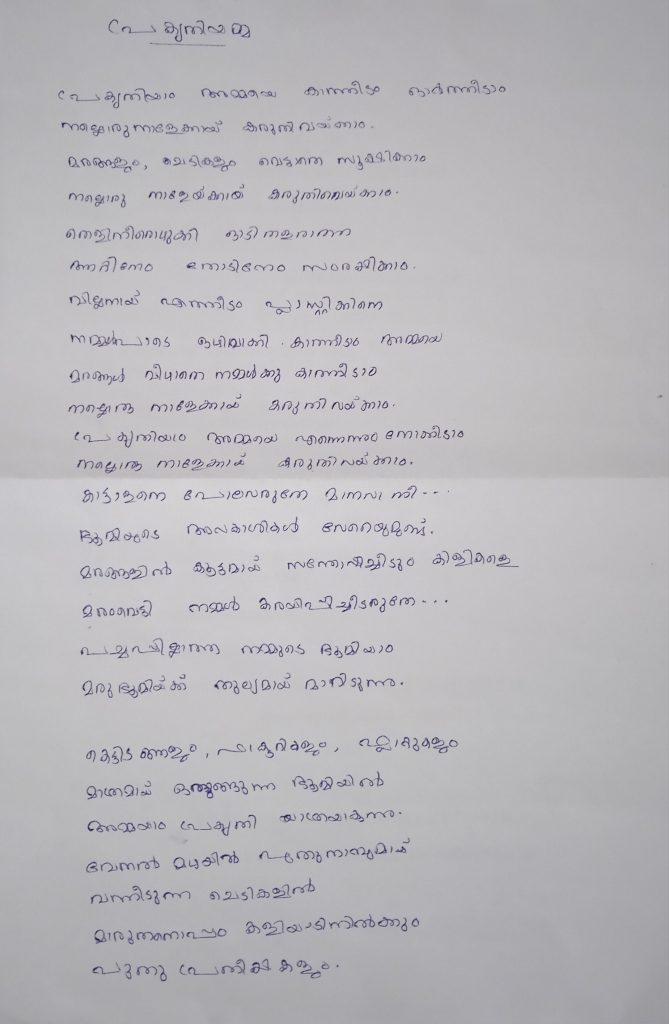 പ്രകൃതിയമ്മ
പ്രകൃതിയാം അമ്മയെ കാത്തീടാം ഓർത്തീടാം
നല്ലൊരുനാളേക്കായ് കരുതിവയ്ക്കാം.
മരങ്ങളും, ചെടികളും വെട്ടാതെ സൂക്ഷിക്കാം
നല്ലൊരു നാളേയ്ക്കായ് കരുതിവെയ്ക്കാം.
തെളിനീരൊഴുക്കി ഓടിതളരാത്ത
അരുവിയേം തോടിനേം സംരക്ഷിക്കാം.
വില്ലനായ് എത്തീടും പ്ലാസ്റ്റിക്കിനെ
നമ്മൾപാടെ ഒഴിവാക്കി കാത്തീടാം അമ്മയെ
മരങ്ങൾ വീഴാതെ നമ്മൾക്കു കാത്തീടാം
നല്ലൊരു നാളേക്കായ് കരുതിവയ്ക്കാം.
പ്രകൃതിയാം അമ്മയെ എന്നെന്നും നോക്കീടാം
നല്ലൊരു നാളേക്കായ് കരുതിവയ്ക്കാം.
കാട്ടാളനെ പോലെയരുതേ മാനവാ നീ...
ഭൂമിയുടെ അവകാശികൾ വേറെയുമുണ്ട്.
മരങ്ങളിൽ കൂട്ടമായ് സന്തോഷിച്ചീടും കിളികളെ
മരംവെട്ടി നമ്മൾ കരയിപ്പിച്ചീടരുതേ...
പച്ചപ്പില്ലാത്ത നമ്മുടെ ഭൂമിയാം
മരുഭൂമിയ്ക്ക് തുല്യമായ് മാറിടുന്നു.
കെട്ടിടങ്ങളും, ഫാക്ടറികളും, ഫ്ലാറ്റുകളും
മാത്രമായ് ഒതുങ്ങുന്ന ഭൂമിയിൽ
അമ്മയാം പ്രകൃതി യാത്രയാകുന്നു.
വേനൽ മഴയിൽ പുതുനാമ്പുമായ്
വന്നീടുന്ന ചെടികളിൽ
മാരുതനൊപ്പം കളിയാടിനിൽക്കും
പുതു പ്രതീക്ഷകളും.